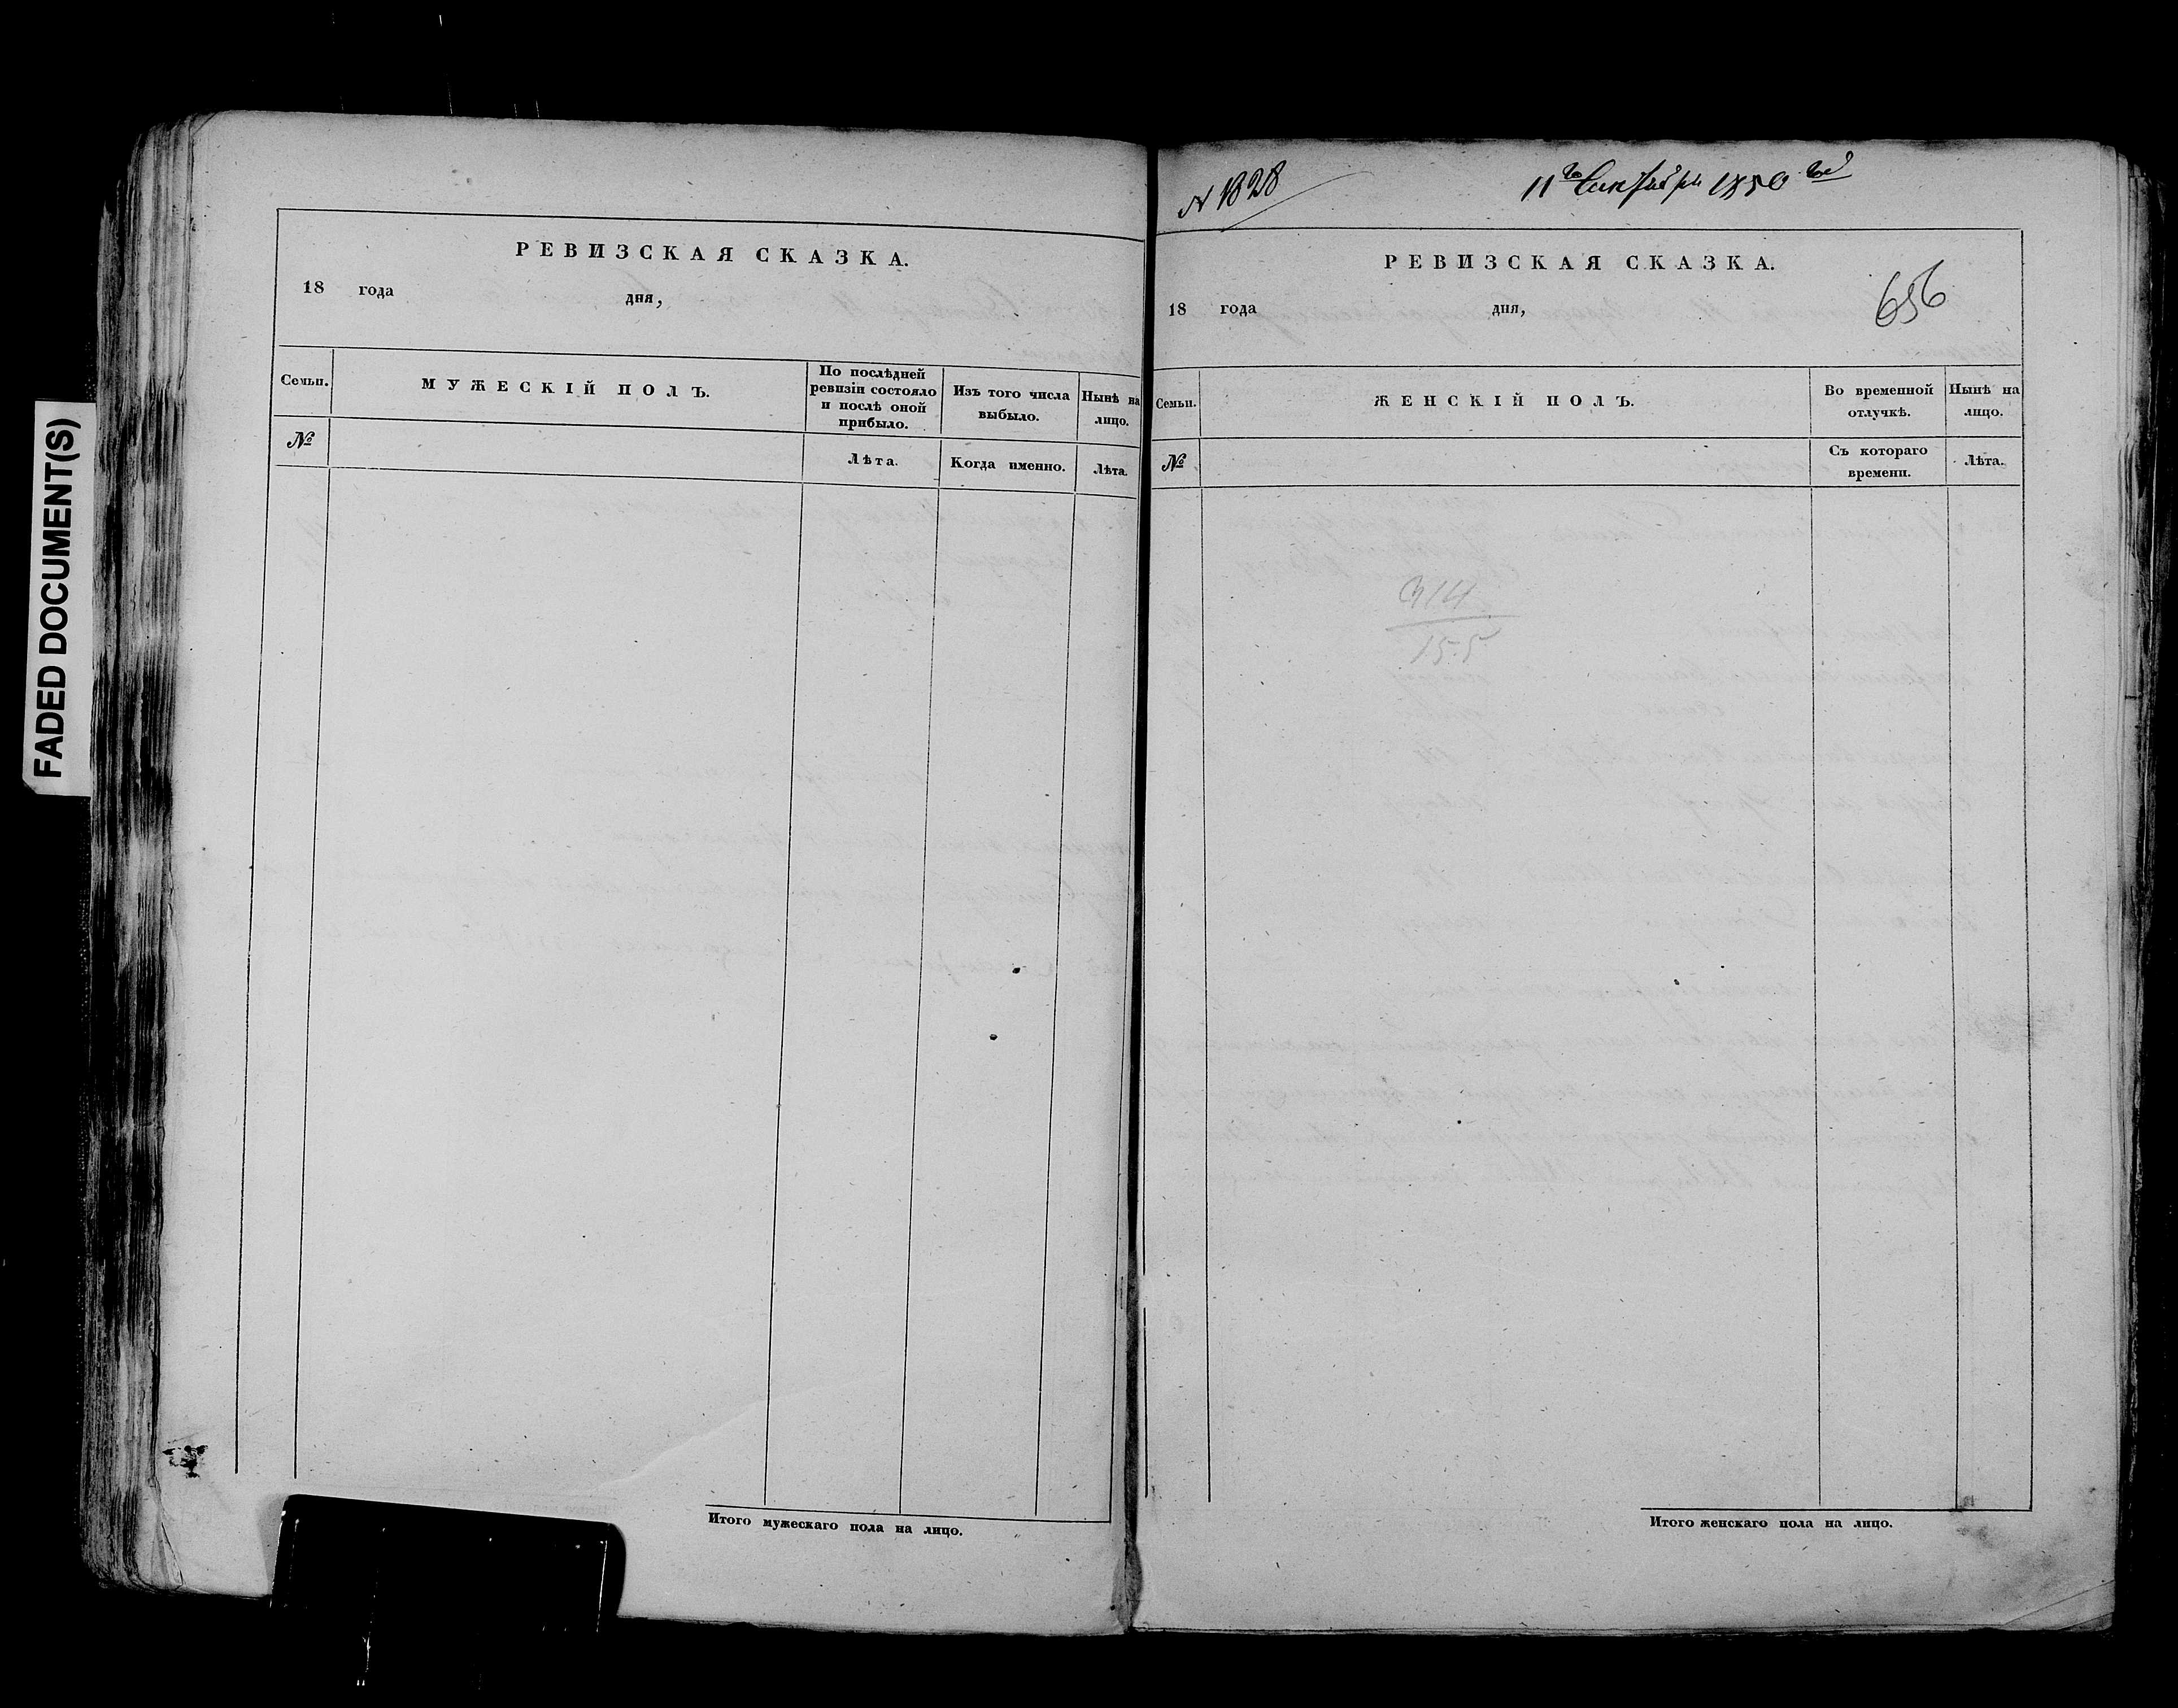 FADED DOCUMENT(S)
РЕВИЗСКАЯ СКАЗКА.
18 года дня,
Семьи.
МУЖЕСКІЙ ПОЛЪ.
По послѣдней
ревизіи состояло
и послѣ оной
прибыло.
Изъ того числа
выбыло.
Нынѣ на
лицо.
№
Лѣта.
Когда именно.
Лѣта.
Итого мужескаго пола на лицо.
N 1828
11го Сентября 1850 год
РЕВИЗСКАЯ СКАЗКА.
656
18 года дня,
Семьи.
ЖЕНСКІЙ ПОЛЪ.
Во временной
отлучкѣ.
Нынѣ на
лицо.
№
Съ котораго
времени.
Лѣта.
314
155
Итого женскаго пола на лицо.